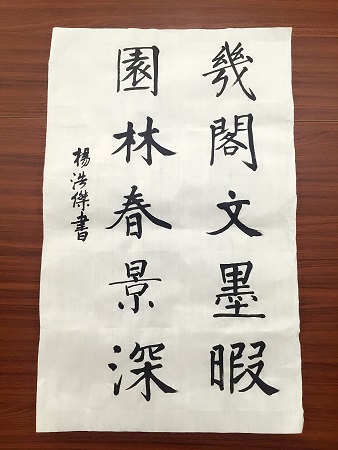 幾閣文墨暇
園林春景深
楊浩傑書